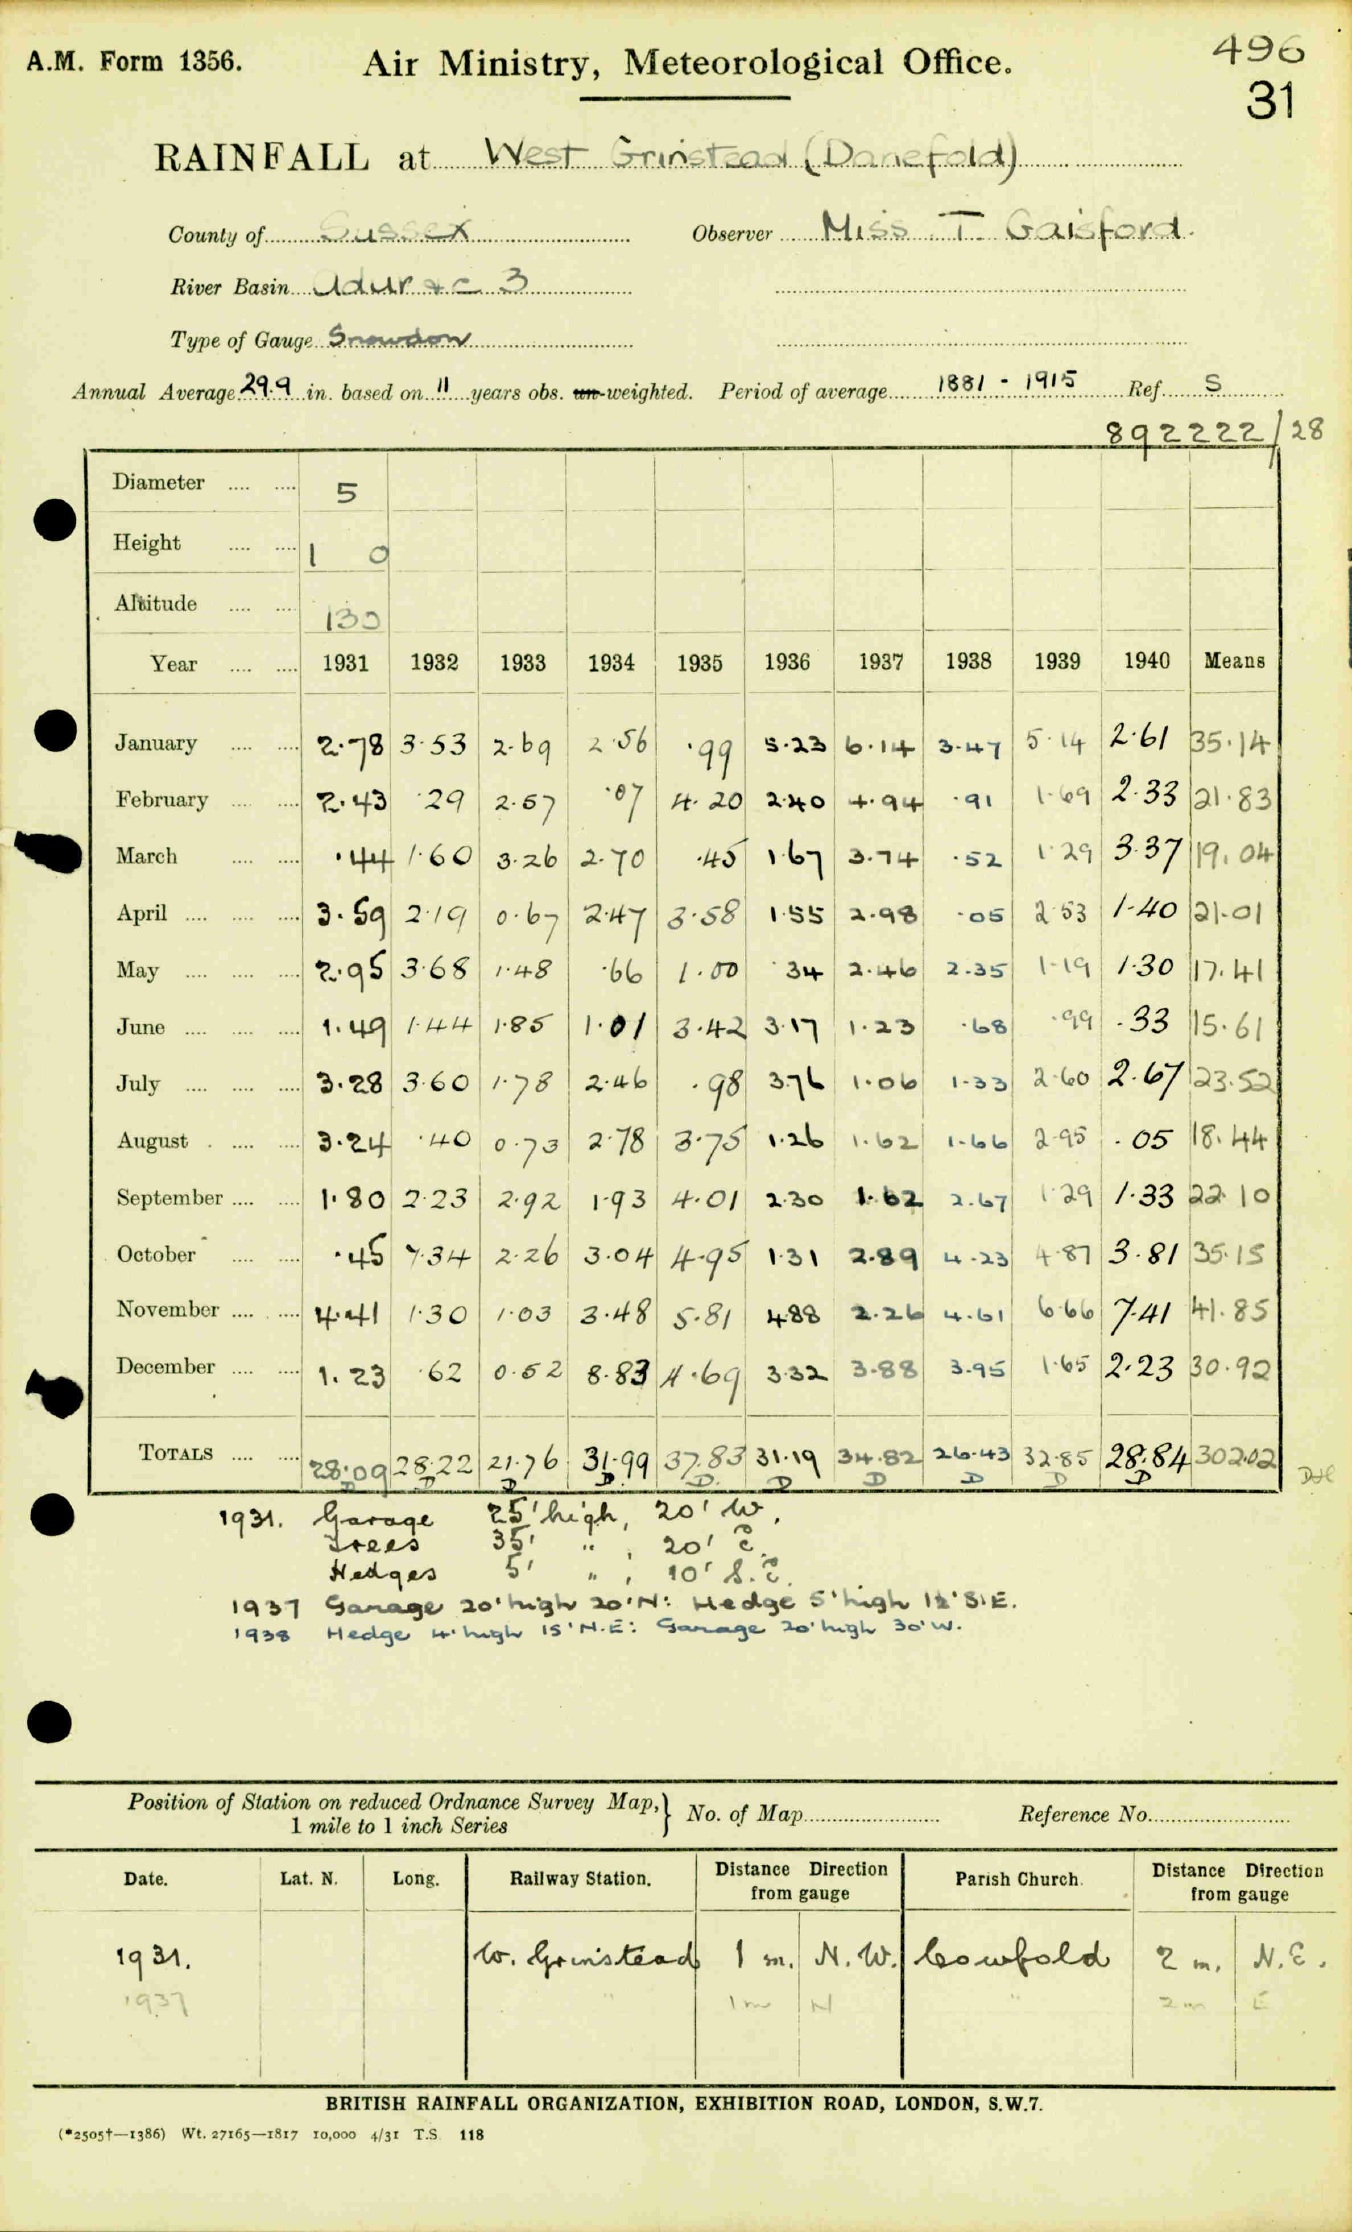 A.M. Form 1356.
Air Ministry, Meteorological Office.
496
31
RAINFALL at West Grinstead (Danefold)
County of Sussex Observer Miss T. Gaisford.
River Basin Adur &c 3
Type of Gauge Snowdon
Annual Average 29.9 in. based on 11 years obs. un-weighted. Period of average 1881 - 1915 Ref. S
892222/28
Diameter 5
Height 1 0
Altitude 130
Year 1931 1932 1933 1934 1935 1936 1937 1938 1939 1940 Means
January 2.78 3.53 2.69 2.56 .99 5.23 6.14 3.47 5.14 2.61 35.14
February 2.43 .29 2.57 .07 4.20 2.40 4.94 .91 1.69 2.33 21.83
March .44 1.60 3.26 2.70 .45 1.67 3.74 .52 1.29 3.37 19.04
April 3.59 2.19 0.67 2.47 3.58 1.55 2.98 .05 2.53 1.40 21.01
May 2.95 3.68 1.48 .66 1.00 .34 2.46 2.35 1.19 1.30 17.41
June 1.49 1.44 1.85 1.01 3.42 3.17 1.23 .68 .99 .33 15.61
July 3.28 3.60 1.78 2.46 .98 3.76 1.06 1.33 2.60 2.67 23.52
August 3.24 .40 0.73 2.78 3.75 1.26 1.62 1.66 2.95 .05 18.44
September 1.80 2.23 2.92 1.93 4.01 2.30 1.62 2.67 1.29 1.33 22.10
October .45 7.34 2.26 3.04 4.95 1.31 2.89 4.23 4.87 3.81 35.15
November 4.41 1.30 1.03 3.48 5.81 4.88 2.26 4.61 6.66 7.41 41.85
December 1.23 .62 0.52 8.83 4.69 3.32 3.88 3.95 1.65 2.23 30.92
TOTALS 28.09 28.22 21.76 31.99 37.83 31.19 34.82 26.43 32.85 28.84 302.02
D D D D. D. D D D D D
1931. Garage 25' high, 20' W.
Trees 35' " , 20' E.
Hedges 5' " , 10' S.E.
1937 Garage 20' high 20' N: Hedge 5' high 1½' S'E.
1938 Hedge 4' high 15' N.E: Garage 20' high 30' W.
Position of Station on reduced Ordnance Survey Map,} No. of Map Reference No.
1 mile to 1 inch Series
Date. Lat. N. Long. Railway Station. Distance Direction from gauge Parish Church. Distance Direction from gauge
1931. W. Grinstead 1 m. N.W. Cowfold 2 m. N.E.
1937 " 1 m N " 2 m E
BRITISH RAINFALL ORGANIZATION, EXHIBITION ROAD, LONDON, S.W.7.
(*2505†—1386) Wt. 27165—1817 10,000 4/31 T.S. 118